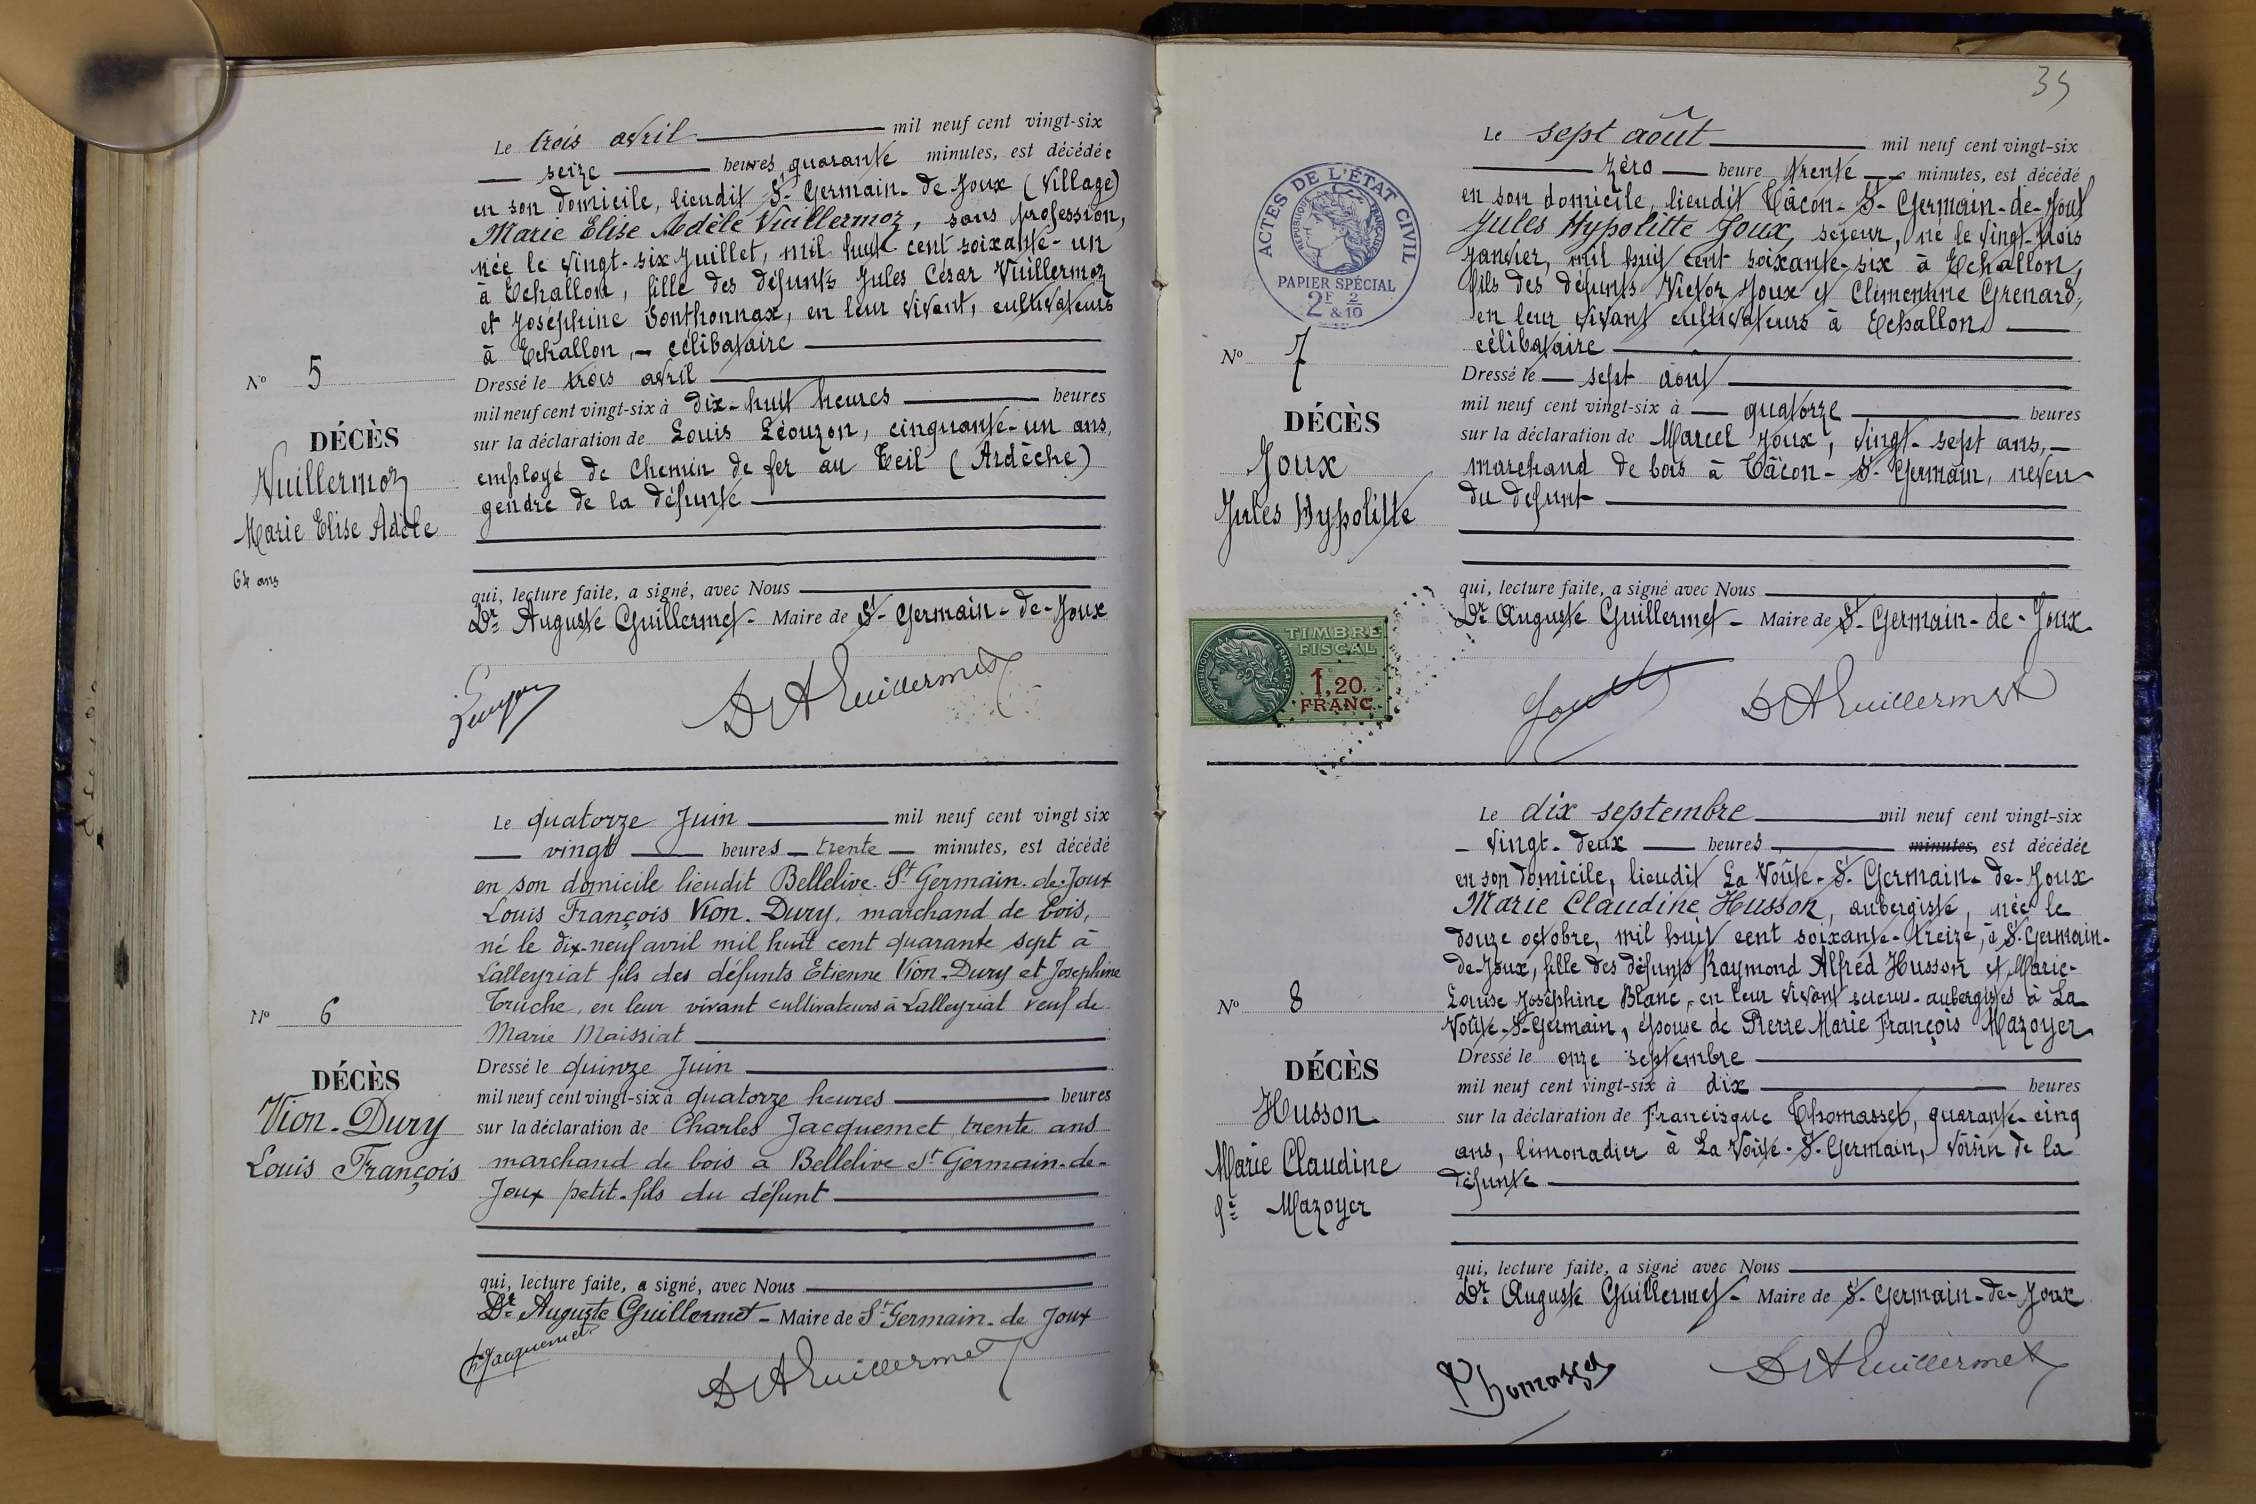 Le trois avril mil neuf cent vingt-six
seize heures, quarante minutes, est décédée
en son domicile, lieudit St Germain-de Joux (Village)
Marie Elise Adèle Vuillermoz, sans profession,
née le vingt-six Juillet, mil huit cent soixante-un
à Echallon, fille des défunts Jules César Vuillermoz
et Joséphine Sonthonnax, en leur vivant, cultivateurs
à Echallon, - célibataire
Dressé le trois avril
mil neuf cent vingt-six à dix-huit heures heures
sur la déclaration de Louis Léouzon, cinquante-un ans,
employé de Chemin de fer au Teil (Ardèche)
gendre de la défunte
qui, lecture faite, a signé, avec Nous
Dr Auguste Guillermet - Maire de St-Germain-de-Joux
Dr A Guillermet
No 5
DÉCÈS
Vuillermoz
Marie Elise Adèle
64 ans
Le quatorze Juin mil neuf cent vingt six
vingt heures trente minutes, est décédé
en son domicile lieudit Bellelive. St Germain. de. Joux
Louis François Vion-Dury, marchand de bois,
né le dix-neuf avril mil huit cent quarante sept à
Lalleyriat fils des défunts Etienne Vion-Dury et Joséphine
Truche, en leur vivant cultivateurs à Lalleyriat veuf de
Marie Maissiat
Dressé le quinze Juin
mil neuf cent vingt-six à quatorze heures heures
sur la déclaration de Charles Jacquemet trente ans
marchand de bois à Bellelive St Germain-de-
Joux petit-fils du défunt
qui, lecture faite, a signé, avec Nous
Dr Auguste Guillermet - Maire de St Germain-de Joux
Jacquemet
Dr A Guillermet
No 6
DÉCÈS
Vion-Dury
Louis François
35
ACTES DE L'ÉTAT CIVIL
RÉPUBLIQUE FRANÇAISE
PAPIER SPÉCIAL
2F 2
& 10
Le sept août mil neuf cent vingt-six
zéro heure trente minutes, est décédé
en son domicile, lieudit Tâcon-St-Germain-de-Joux
Jules Hypolitte Joux, scieur, né le vingt-trois
Janvier, mil huit cent soixante-six à Echallon,
fils des défunts Victor Joux et Clémentine Grenard,
en leur vivant cultivateurs à Echallon
célibataire
Dressé le sept août
mil neuf cent vingt-six à quatorze heures
sur la déclaration de Marcel Joux, vingt-sept ans,
marchand de bois à Tâcon-St-Germain, neveu
du défunt
qui, lecture faite, a signé avec Nous
Dr Auguste Guillermet - Maire de St-Germain-de-Joux
Dr A Guillermet
No 7
DÉCÈS
Joux
Jules Hypolitte
TIMBRE
FISCAL
RÉPUBLIQUE FRANÇAISE
1,20
FRANC
Le dix septembre mil neuf cent vingt-six
vingt-deux heures minutes, est décédée
en son domicile, lieudit La Voûte-St-Germain-de-Joux
Marie Claudine Husson, aubergiste, née le
douze octobre, mil huit cent soixante-treize, à St-Germain-
de-Joux, fille des défunts Raymond Alfred Husson et Marie-
Louise Joséphine Blanc, en leur vivant scieurs-aubergistes à La
Voûte-St-Germain, épouse de Pierre Marie François Mazoyer
Dressé le onze septembre
mil neuf cent vingt-six à dix heures
sur la déclaration de Francisque Thomasset, quarante-cinq
ans, limonadier à La Voûte-St-Germain, voisin de la
défunte
qui, lecture faite, a signé avec Nous
Dr Auguste Guillermet - Maire de St-Germain-de-Joux
Thomasset
Dr A Guillermet
No 8
DÉCÈS
Husson
Marie Claudine
fe Mazoyer